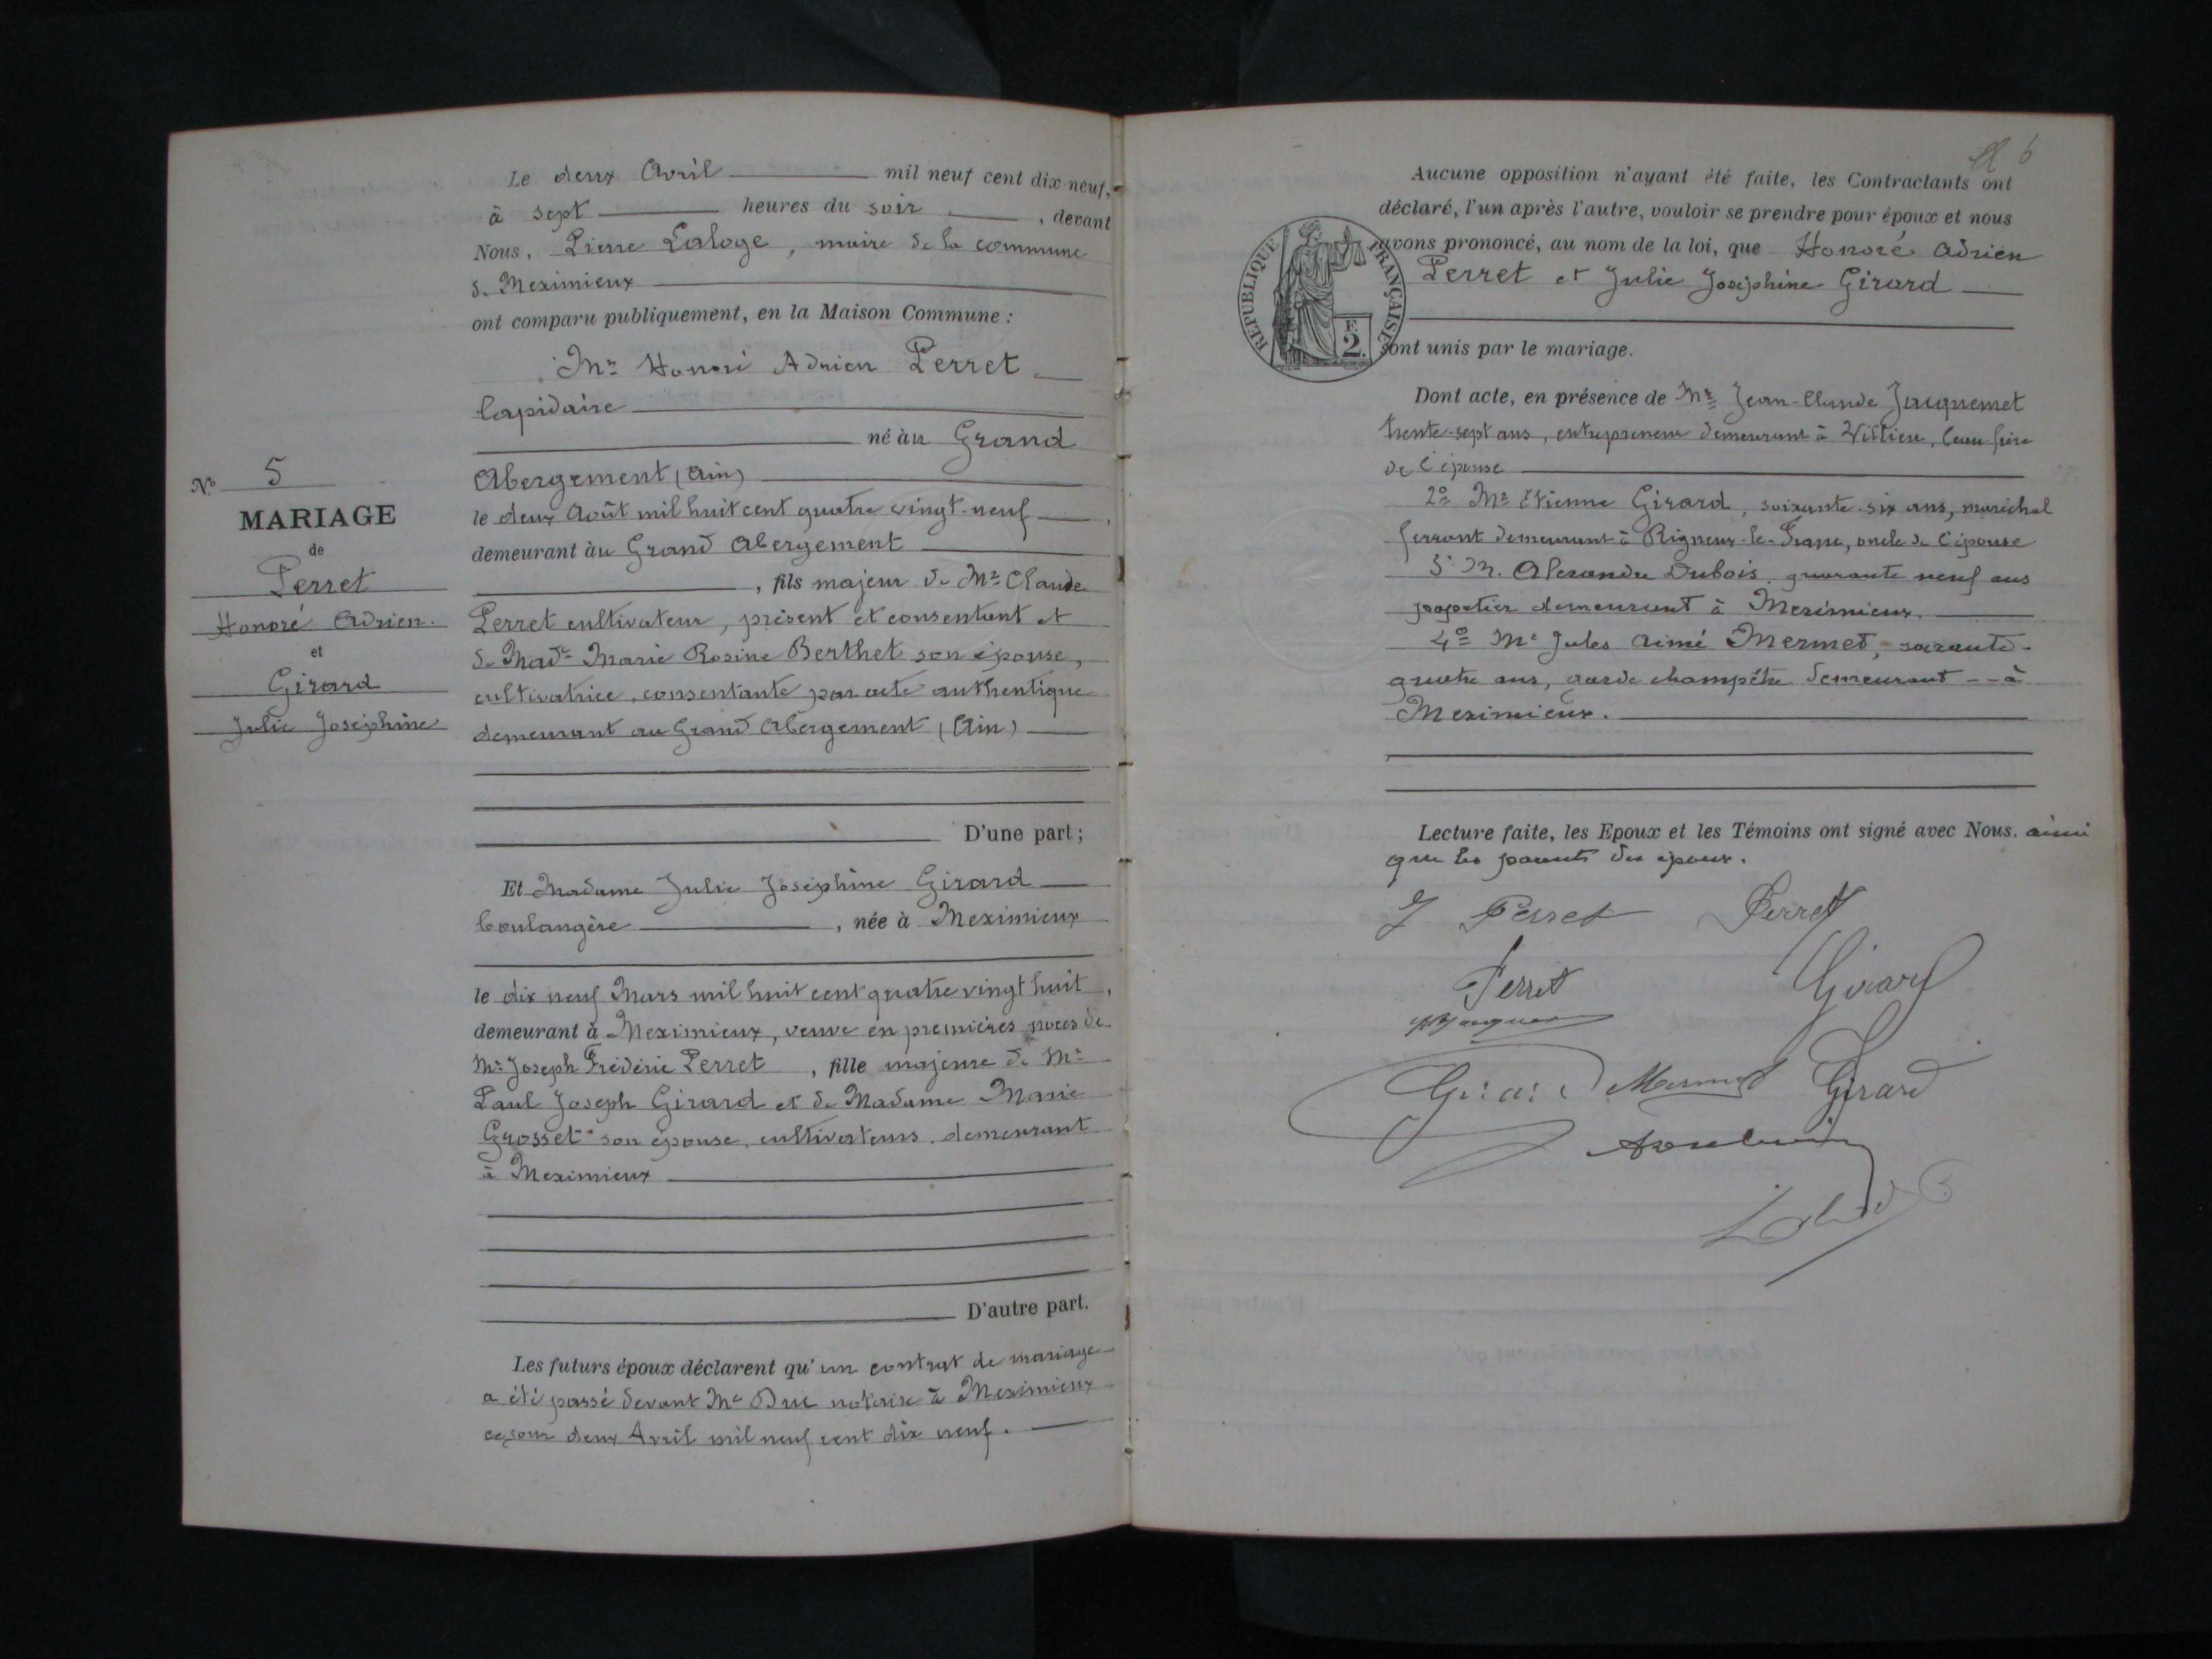 Le deux Avril mil neuf cent dix neuf,
à sept heures du soir , devant
Nous, Pierre Laloge, maire de la commune
de Meximieux
ont comparu publiquement, en la Maison Commune :
Mr Honoré Adrien Perret
lapidaire
né àu Grand
Nº 5
MARIAGE
de
Perret
Honoré Adrien.
et
Girard
Julie Joséphine
Abergement (Ain)
le deux Août mil huit cent quatre vingt-neuf
demeurant àu Grand Abergement
, fils majeur de Mr Claude
Perret cultivateur, présent et consentant et
de Made Marie Rosine Berthet son épouse,
cultivatrice, consentante par acte authentique
demeurant au Grand Abergement (Ain)
D'une part ;
Et Madame Julie Joséphine Girard
boulangère , née à Meximieux
le dix neuf Mars mil huit cent quatre vingt huit,
demeurant à Meximieux, veuve en premières noces de
Mr Joseph Frédéric Perret , fille majeure de Mr
Paul Joseph Girard et de Madame Marie
Grosset son épouse, cultivateurs, demeurant
à Meximieux
D'autre part.
Les futurs époux déclarent qu'un contrat de mariage
a été passé devant Me Duc notaire à Meximieux
ce jour deux Avril mil neuf cent dix neuf.
6
Aucune opposition n'ayant été faite, les Contractants ont
déclaré, l'un après l'autre, vouloir se prendre pour époux et nous
avons prononcé, au nom de la loi, que Honoré Adrien
Perret et Julie Joséphine Girard
REPUBLIQUE FRANÇAISE
F
2.
sont unis par le mariage.
Dont acte, en présence de Mr Jean-Claude Jacquemet
trente-sept ans, entrepreneur demeurant à Villieu, beau-frère
de l'épouse
2º Mr Etienne Girard, soixante-six ans, maréchal
ferrant demeurant à Rigneux-le-Franc, oncle de l'épouse
3º M. Alexandre Dubois, quarante neuf ans
papetier demeurant à Meximieux.
4º Mr Jules Aimé Mermet, soixante-
quatre ans, garde champêtre demeurant -- à
Meximieux.
Lecture faite, les Epoux et les Témoins ont signé avec Nous. ainsi
que les parents des époux.
J Perret Perret
Perret Girard
Girard Mermet Girard